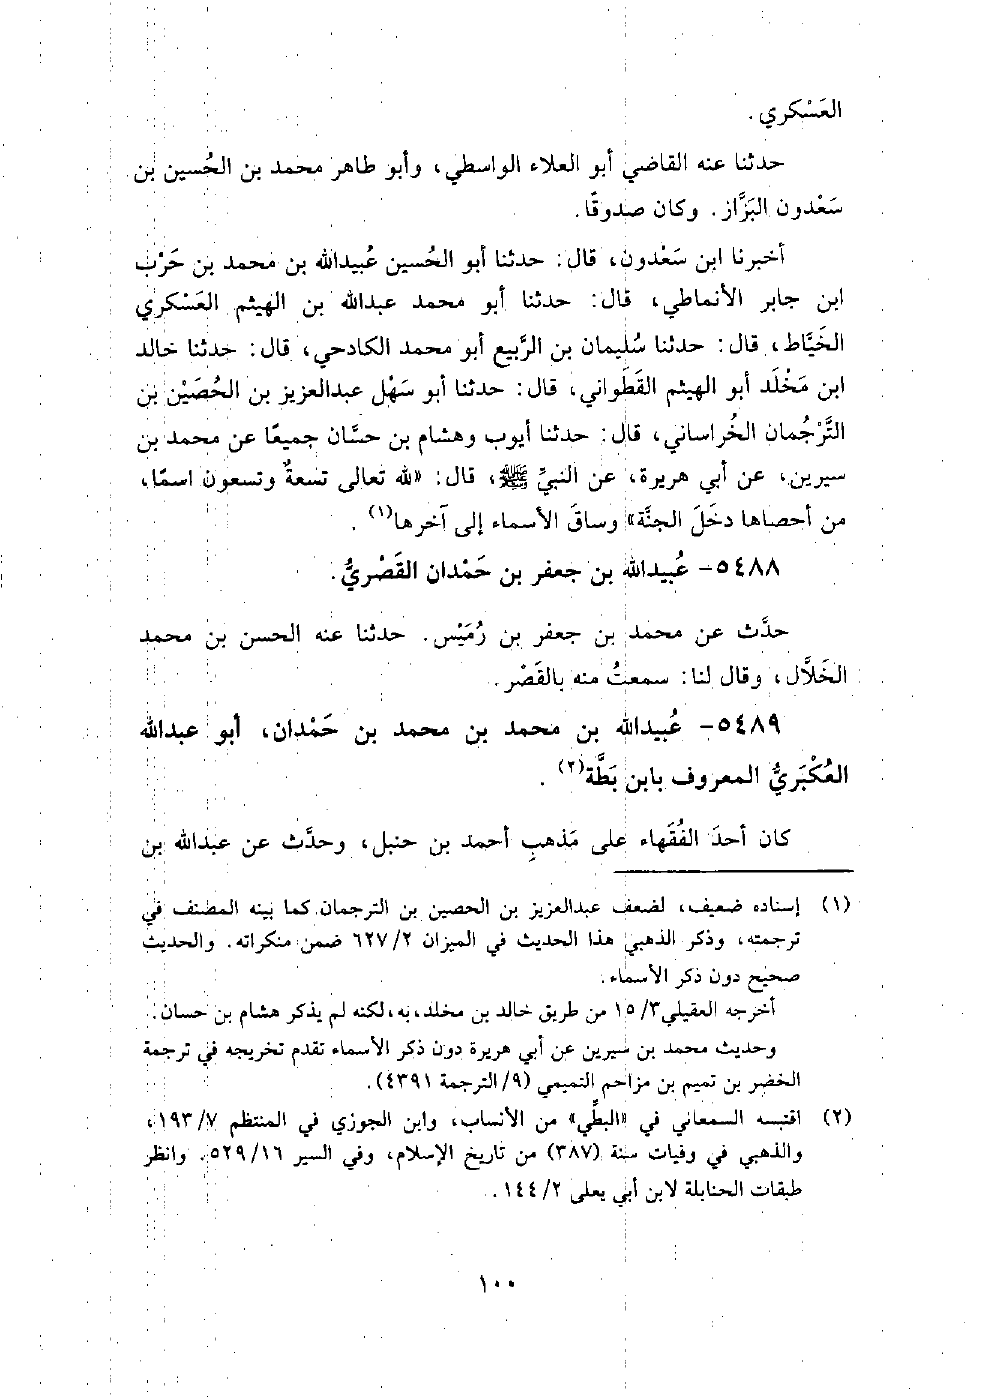 العَسْكري .
حدثنا عنه القاضي أبو العلاء الواسطي، وأبو طاهر محمد بن الحُسين بن
سَعْدون البَزَّاز. وكان صدوقًا.
أخبرنا ابن سَعْدون، قال: حدثنا أبو الحُسين عُبيدالله بن محمد بن حَرْب
ابن جابر الأنماطي، قال: حدثنا أبو محمد عبدالله بن الهيثم العَسْكري
الخَيَّاط، قال: حدثنا سُليمان بن الرَّبيع أبو محمد الكادحي، قال: حدثنا خالد
ابن مَخْلَد أبو الهيثم القَطَواني، قال: حدثنا أبو سَهْل عبدالعزيز بن الحُصَيْن بن
التَّرْجُمان الخُراساني، قال: حدثنا أيوب وهشام بن حسَّان جميعًا عن محمد بن
سيرين، عن أبي هريرة، عن النبيِّ ﷺ، قال: «لله تعالى تسعةٌ وتسعون اسمًا،
من أحصاها دخَلَ الجنَّة» وساقَ الأسماء إلى آخرها(١) .
٥٤٨٨- عُبيدالله بن جعفر بن حَمْدان القَصْريُّ.
حدَّث عن محمد بن جعفر بن رُمَيْس. حدثنا عنه الحسن بن محمد
الخَلَّال، وقال لنا: سمعتُ منه بالقَصْر.
٥٤٨٩- عُبيدالله بن محمد بن محمد بن حَمْدان، أبو عبدالله
العُكْبَريُّ المعروف بابن بَطَّة(٢) .
كان أحدَ الفُقَهاء على مَذهبِ أحمد بن حنبل، وحدَّث عن عبدالله بن
(١) إسناده ضعيف، لضعف عبدالعزيز بن الحصين بن الترجمان كما بينه المصنف في
ترجمته، وذكر الذهبي هذا الحديث في الميزان ٦٢٧/٢ ضمن منكراته. والحديث
صحيح دون ذكر الأسماء.
أخرجه العقيلي ١٥/٣ من طريق خالد بن مخلد، به، لكنه لم يذكر هشام بن حسان.
وحديث محمد بن سيرين عن أبي هريرة دون ذكر الأسماء تقدم تخريجه في ترجمة
الخضر بن تميم بن مزاحم التميمي (٩/ الترجمة ٤٣٩١).
(٢) اقتبسه السمعاني في «البطِّي» من الأنساب، وابن الجوزي في المنتظم ١٩٣/٧،
والذهبي في وفيات سنة (٣٨٧) من تاريخ الإسلام، وفي السير ٥٢٩/١٦. وانظر
طبقات الحنابلة لابن أبي يعلى ١٤٤/٢.
١٠٠